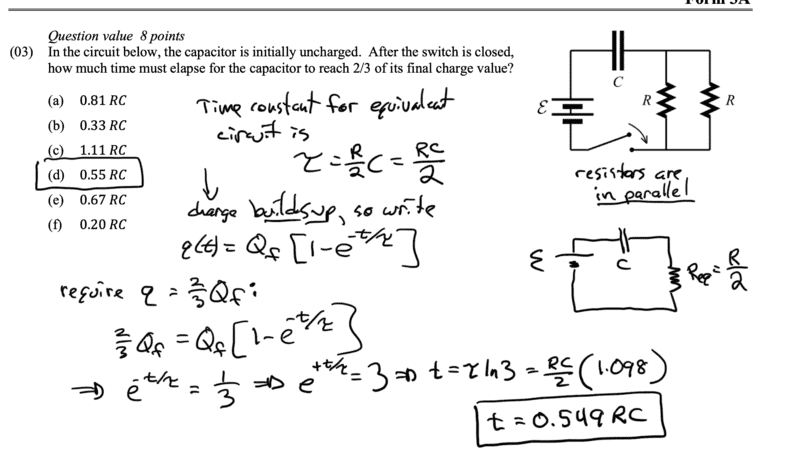 Form 3A
Question value 8 points
(03) In the circuit below, the capacitor is initially uncharged. After the switch is closed,
how much time must elapse for the capacitor to reach 2/3 of its final charge value?
(a) 0.81 RC
(b) 0.33 RC
(c) 1.11 RC
(d) 0.55 RC
(e) 0.67 RC
(f) 0.20 RC
Time constant for equivalent
circuit is
τ = R/2 C = RC/2
↓
charge builds up, so write
q(t) = Q_f [1-e^{-t/τ}]
require q = 2/3 Q_f:
2/3 Q_f = Q_f [1-e^{-t/τ}]
⇒ e^{-t/τ} = 1/3 ⇒ e^{+t/τ} = 3 ⇒ t = τ ln 3 = RC/2 (1.098)
t = 0.549 RC
C
ℰ
R
R
resistors are
in parallel
ℰ
C
R_eq = R/2